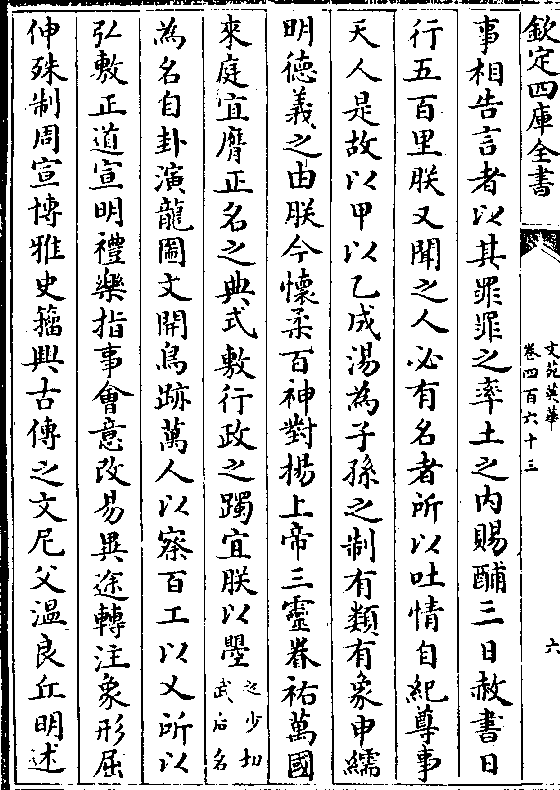 欽定四庫全書
文苑英華
卷四百六十三
六
事相告言者以其罪罪之率土之内賜酺三日赦書日
行五百里朕又聞之人必有名者所以吐情自紀尊事
天人是故以甲以乙成湯為子孫之制有類有象申繻
明德義之由朕今懷柔百神對揚上帝三靈眷祐萬國
來庭宜膺正名之典式敷行政之躅宜朕以曌之少切武后名
為名自卦演龍圖文開鳥跡萬人以察百工以乂所以
弘敷正道宣明禮樂指事會意改易異途轉注象形屈
伸殊制周宣博雅史籀興古傳之文尼父温良丘明述